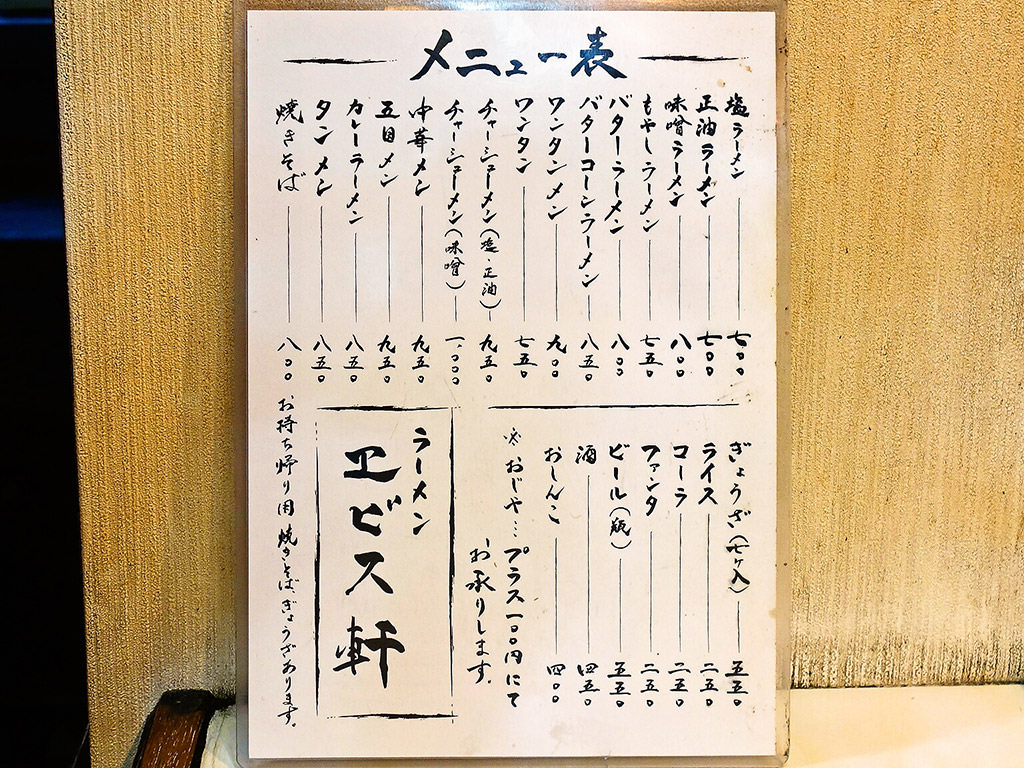 メニュー表
塩ラーメン 七〇〇
正油ラーメン 七〇〇
味噌ラーメン 八〇〇
もやしラーメン 七五〇
バターラーメン 八〇〇
バターコーンラーメン 八五〇
ワンタンメン 九〇〇
ワンタン 七五〇
チャーシューメン(塩・正油) 九五〇
チャーシューメン(味噌) 一、〇〇〇
中華メン 九五〇
五目メン 九五〇
カレーラーメン 八五〇
タンメン 八五〇
焼きそば 八〇〇
ぎょうざ(七ヶ入) 五五〇
ライス 二五〇
コーラ 二五〇
ファンタ 二五〇
ビール(瓶) 五五〇
酒 四五〇
おしんこ 四〇〇
※おじや…プラス一〇〇円にて
お承りします。
ラーメン
ヱビス軒
お持ち帰り用焼きそば、ぎょうざあります。